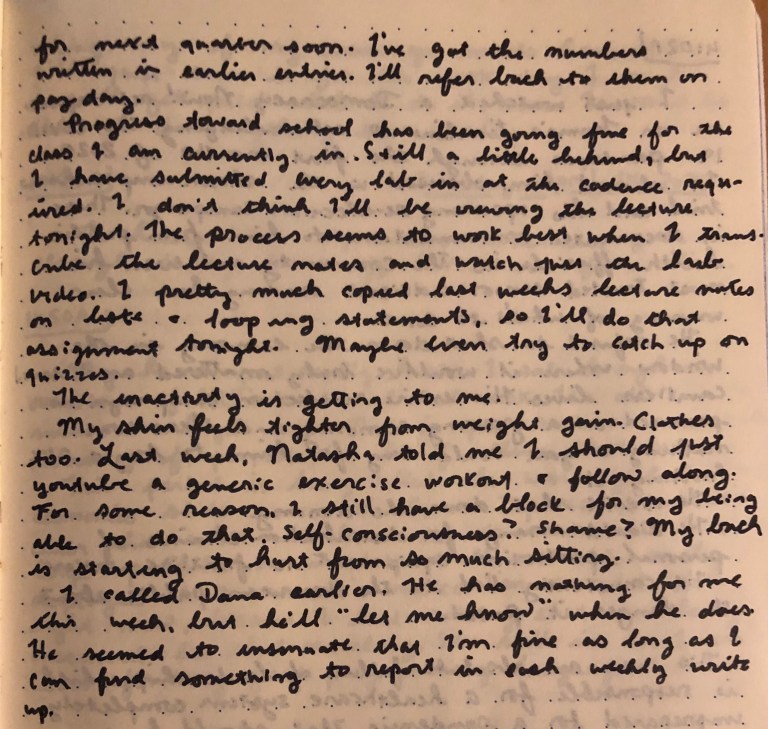 for next quarter soon. I've got the numbers
written in earlier entries. I'll refer back to them on
pay day.
Progress toward school has been going fine for the
class I am currently in. Still a little behind, but
I have submitted every lab in at the cadence requ-
ired. I don't think I'll be viewing the lecture
tonight. The process seems to work best when I trans-
cribe the lecture notes and watch just the lab
video. I pretty much copied last weeks lecture notes
on lists & looping statements, so I'll do that
assignment tonight. Maybe even try to catch up on
quizzes.
The inactivity is getting to me.
My skin feels tighter from weight gain. Clothes
too. Last week, Natasha told me I should just
youtube a generic exercise workout & follow along.
For some reason, I still have a block for my being
able to do that. Self-consciousness? Shame? My back
is starting to hurt from so much sitting.
I called Dana earlier. He has nothing for me
this week, but he'll "let me know" when he does.
He seemed to insinuate that I'm fine as long as I
can find something to report in each weekly write
up.